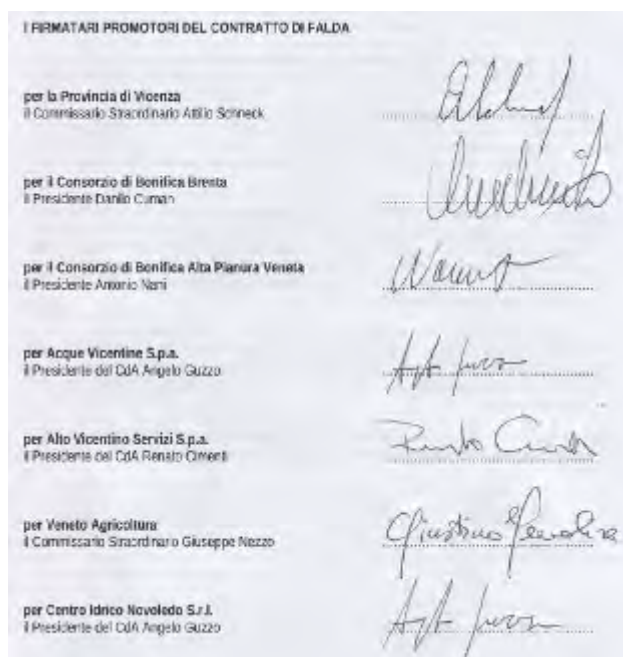 I FIRMATARI PROMOTORI DEL CONTRATTO DI FALDA
per la Provincia di Vicenza
il Commissario Straordinario Attilio Schneck
per il Consorzio di Bonifica Brenta
il Presidente Danilo Cuman
per il Consorzio di Bonifica Alta Pianura Veneta
il Presidente Antonio Nani
per Acque Vicentine S.p.a.
il Presidente del CdA Angelo Guzzo
per Alto Vicentino Servizi S.p.a.
il Presidente del CdA Renato Cimenti
per Veneto Agricoltura
il Commissario Straordinario Giuseppe Nezzo
per Centro Idrico Novoledo S.r.l.
il Presidente del CdA Angelo Guzzo